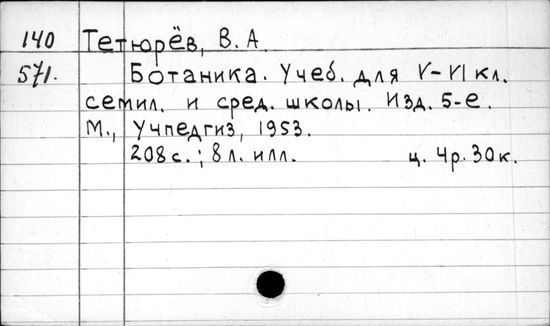 140 Тетюрёв, В. А.
571. Ботаника. Учеб. для V–VI кл.
семил. и сред. школы. Изд. 5-е.
М., Учпедгиз, 1953.
208 с.; 8 л. илл. ц. 4р. 30к.